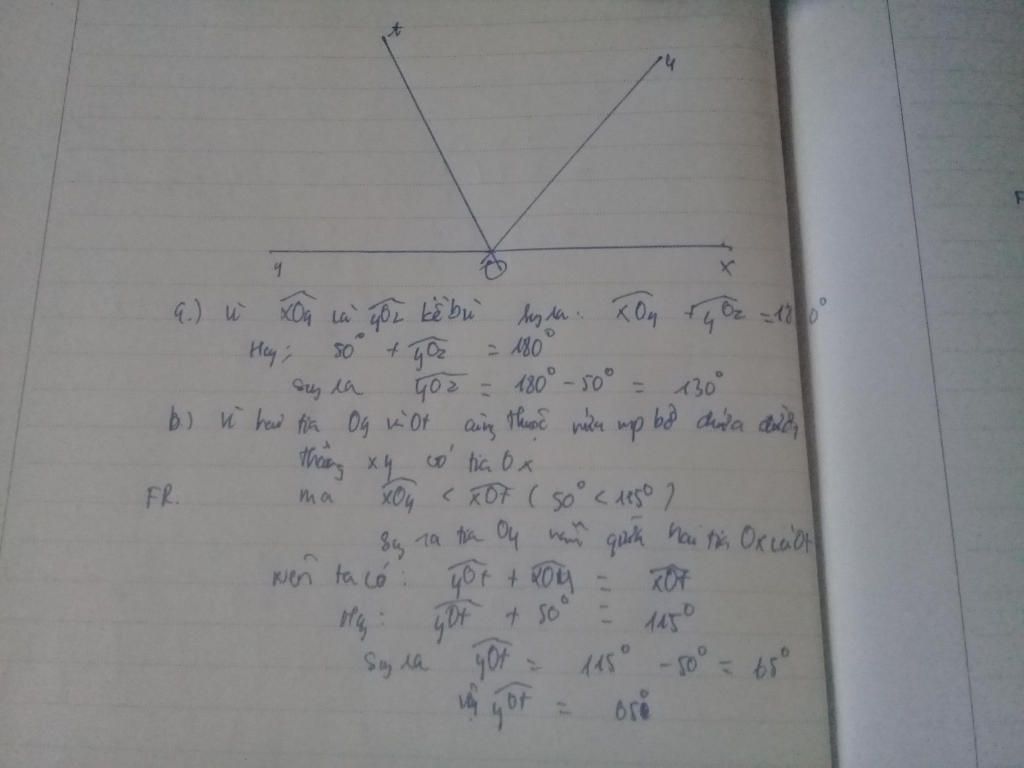 t
y
y
O
x
a.) Vì xOy và yOz kề bù suy ra: xOy + yOz = 180°
Hay: 50° + yOz = 180°
Suy ra yOz = 180° - 50° = 130°
b.) Vì hai tia Oy và Ot cùng thuộc nửa mp bờ chứa đường
thẳng xy có tia Ox
FR. mà xOy < xOt (50° < 115°)
Suy ra tia Oy nằm giữa hai tia Ox và Ot
Nên ta có: yOt + xOy = xOt
Hay: yOt + 50° = 115°
Suy ra yOt = 115° - 50° = 65°
Vậy yOt = 65°